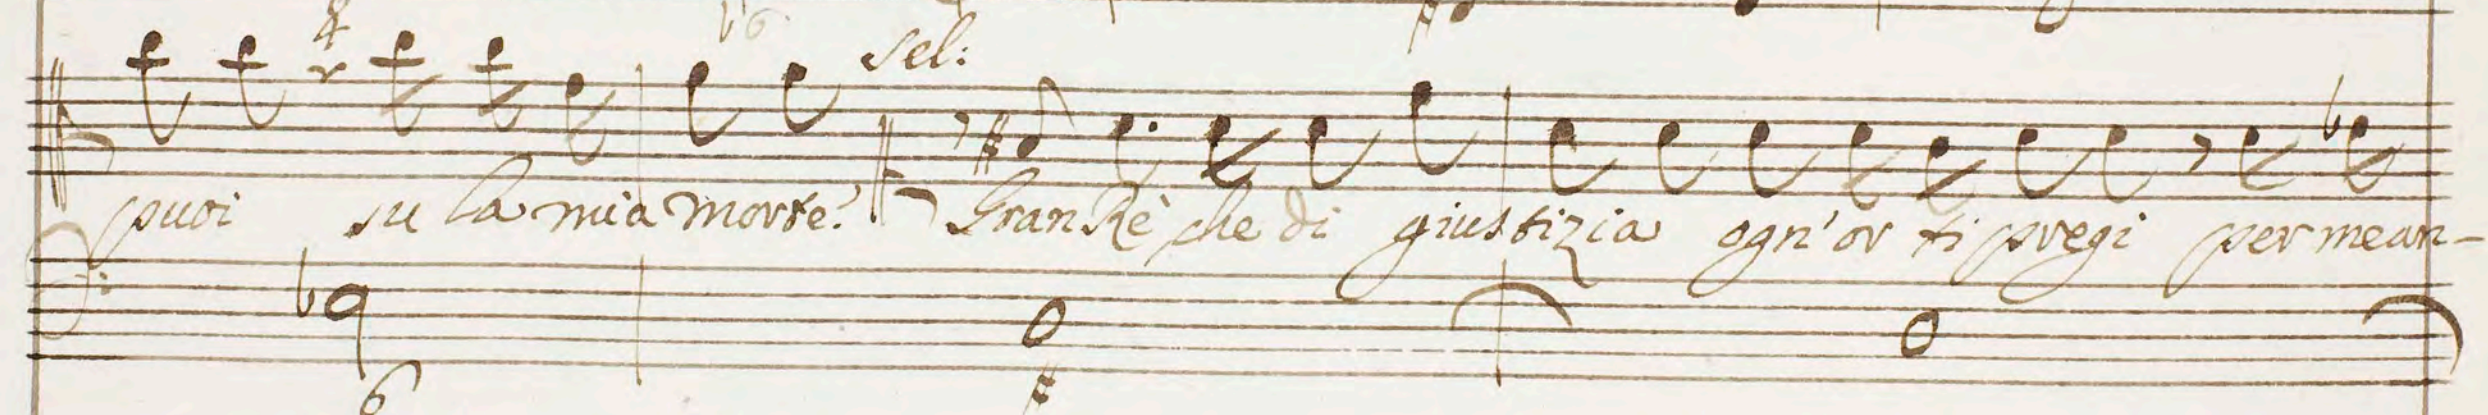 sel:
puoi su la mia morte? Gran Rè che di giustizia ogn'or ti pregi per me an-
6